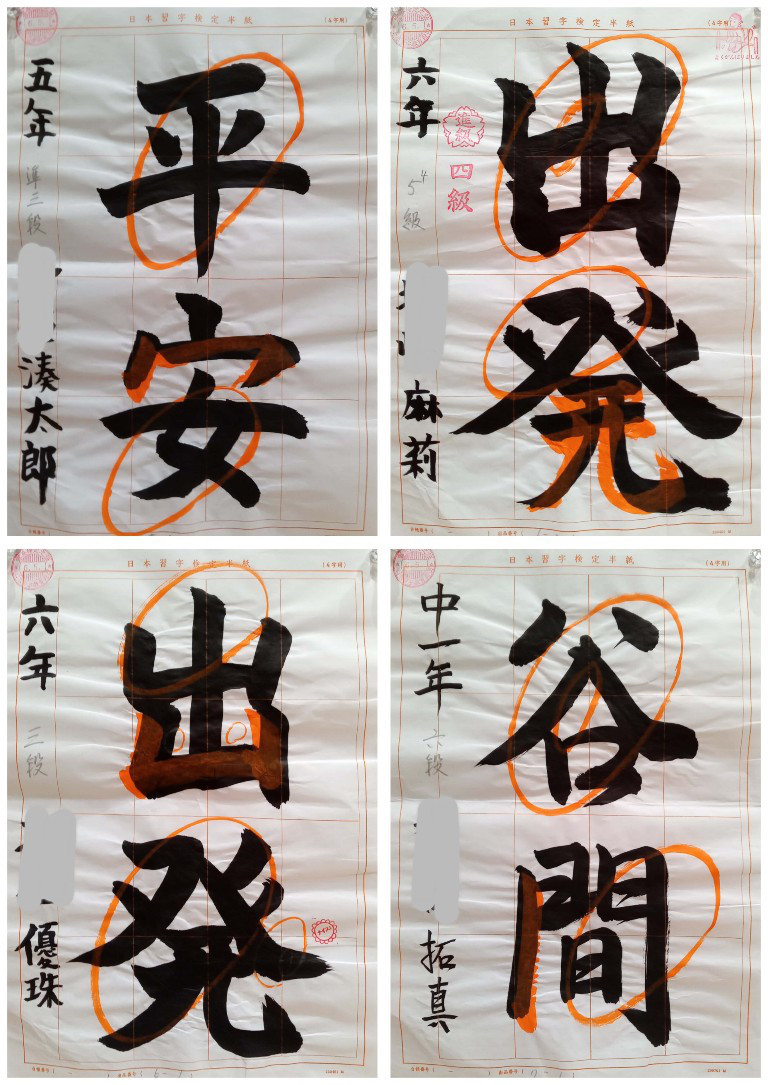 平安
五年
準三段
湊太郎
日本習字検定半紙
(4字用)
出発
六年
5 4
級
進級
四級
麻莉
日本習字検定半紙
(4字用)
出発
六年
三段
優珠
ナイス!
日本習字検定半紙
(4字用)
谷間
中一年
六段
拓真